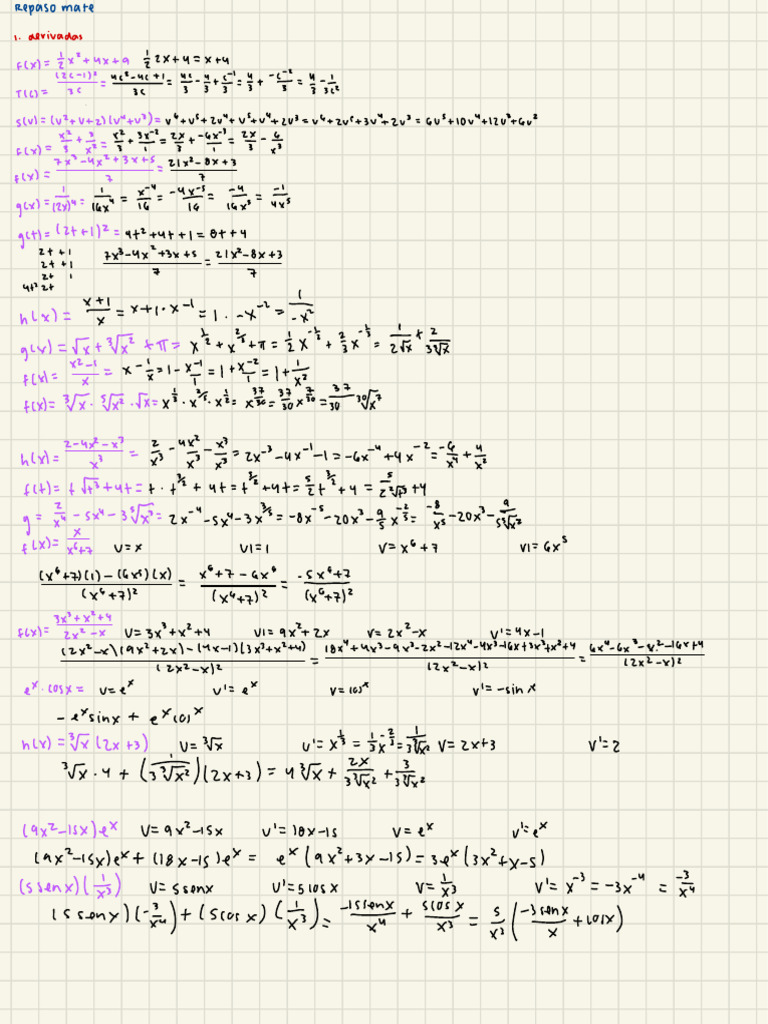 Repaso mate
1. derivadas
f(x) = 1/2 x² + 4x + 9   1/2 2x + 4 = x + 4
T(c) = (2c-1)²/3c = 4c²-4c+1/3c = 4c/3 - 4/3 + c⁻¹/3 = 4/3 + -c⁻²/3 = 4/3 - 1/3c²
s(v) = (v²+v+2)(v⁴+v³) = v⁶+v⁵+2v⁴+v⁵+v⁴+2v³ = v⁶+2v⁵+3v⁴+2v³ = 6v⁵+10v⁴+12v³+6v²
f(x) = x²/3 + 3/x² = x²/3 + 3x⁻²/1 = 2x/3 + -6x⁻³/1 = 2x/3 - 6/x³
f(x) = 7x³-4x²+3x+5/7 = 21x²-8x+3/7
g(x) = 1/(2x)⁴ = 1/16x⁴ = x⁻⁴/16 = -4x⁻⁵/16 = -4/16x⁵ = -1/4x⁵
g(t) = (2t+1)² = 4t²+4t+1 = 8t+4
2t +1
2t +1
2t 1
4t² 2t
7x³-4x²+3x+5/7 = 21x²-8x+3/7
h(x) = x+1/x = x+1·x⁻¹ = 1·-x⁻² = 1/-x²
g(x) = √x + ³√x² + π = x^1/2 + x^2/3 + π = 1/2 x^-1/2 + 2/3 x^-1/3 = 1/2√x + 2/3³√x
f(x) = x²-1/x = x - 1/x = 1 - x⁻¹/1 = 1 + x⁻²/1 = 1 + 1/x²
f(x) = ³√x · ⁵√x² · √x = x^1/3 · x^2/5 · x^1/2 = x^37/30 = 37/30 x^7/30 = 37/30 ³⁰√x⁷
h(x) = 2-4x²-x³/x³ = 2/x³ - 4x²/x³ - x³/x³ = 2x⁻³-4x⁻¹-1 = -6x⁻⁴+4x⁻² = -6/x⁴ + 4/x²
f(t) = t√t³+4t = t·t^3/2+4t = t^3/2+4t = 5/2 t^3/2+4 = 5/2²√t³+4
g = 2/x⁴ - 5x⁴ - 3⁵√x³ = 2x⁻⁴-5x⁴-3x^3/5 = -8x⁻⁵-20x³-9/5 x^-2/5 = -8/x⁵ - 20x³ - 9/5⁵√x²
f(x) = x/x⁶+7   U=x   U1=1   V=x⁶+7   V1=6x⁵
(x⁶+7)(1)-(6x⁵)(x)/(x⁶+7)² = x⁶+7-6x⁶/(x⁶+7)² = -5x⁶+7/(x⁶+7)²
f(x) = 3x³+x²+4/2x²-x   U=3x³+x²+4   U1=9x²+2x   V=2x²-x   V'=4x-1
(2x²-x)(9x²+2x)-(4x-1)(3x³+x²+4)/(2x²-x)² = 18x⁴+4x³-9x³-2x²-12x⁴-4x³-16x+3x³+x²+4/(2x²-x)² = 6x⁴-6x³-x²-16x+4/(2x²-x)²
eˣ·cosx =   U=eˣ   U'=eˣ   V=cosˣ   V'=-sinx
-eˣsinx + eˣcosˣ
h(x) = ³√x(2x+3)   U=³√x   U'=x^1/3 = 1/3 x^-2/3 = 1/3³√x²   V=2x+3   V'=2
³√x·4 + (1/3³√x²)(2x+3) = 4³√x + 2x/3³√x² + 3/3³√x²
(9x²-15x)eˣ   U=9x²-15x   U'=18x-15   V=eˣ   V'=eˣ
(9x²-15x)eˣ+(18x-15)eˣ = eˣ(9x²+3x-15) = 3eˣ(3x²+x-5)
(5senx)(1/x³)   U=5senx   U'=5cosx   V=1/x³   V'=x⁻³=-3x⁻⁴ = -3/x⁴
(5senx)(-3/x⁴)+(5cosx)(1/x³) = -15senx/x⁴ + 5cosx/x³ = 5/x³(-3senx/x + cosx)